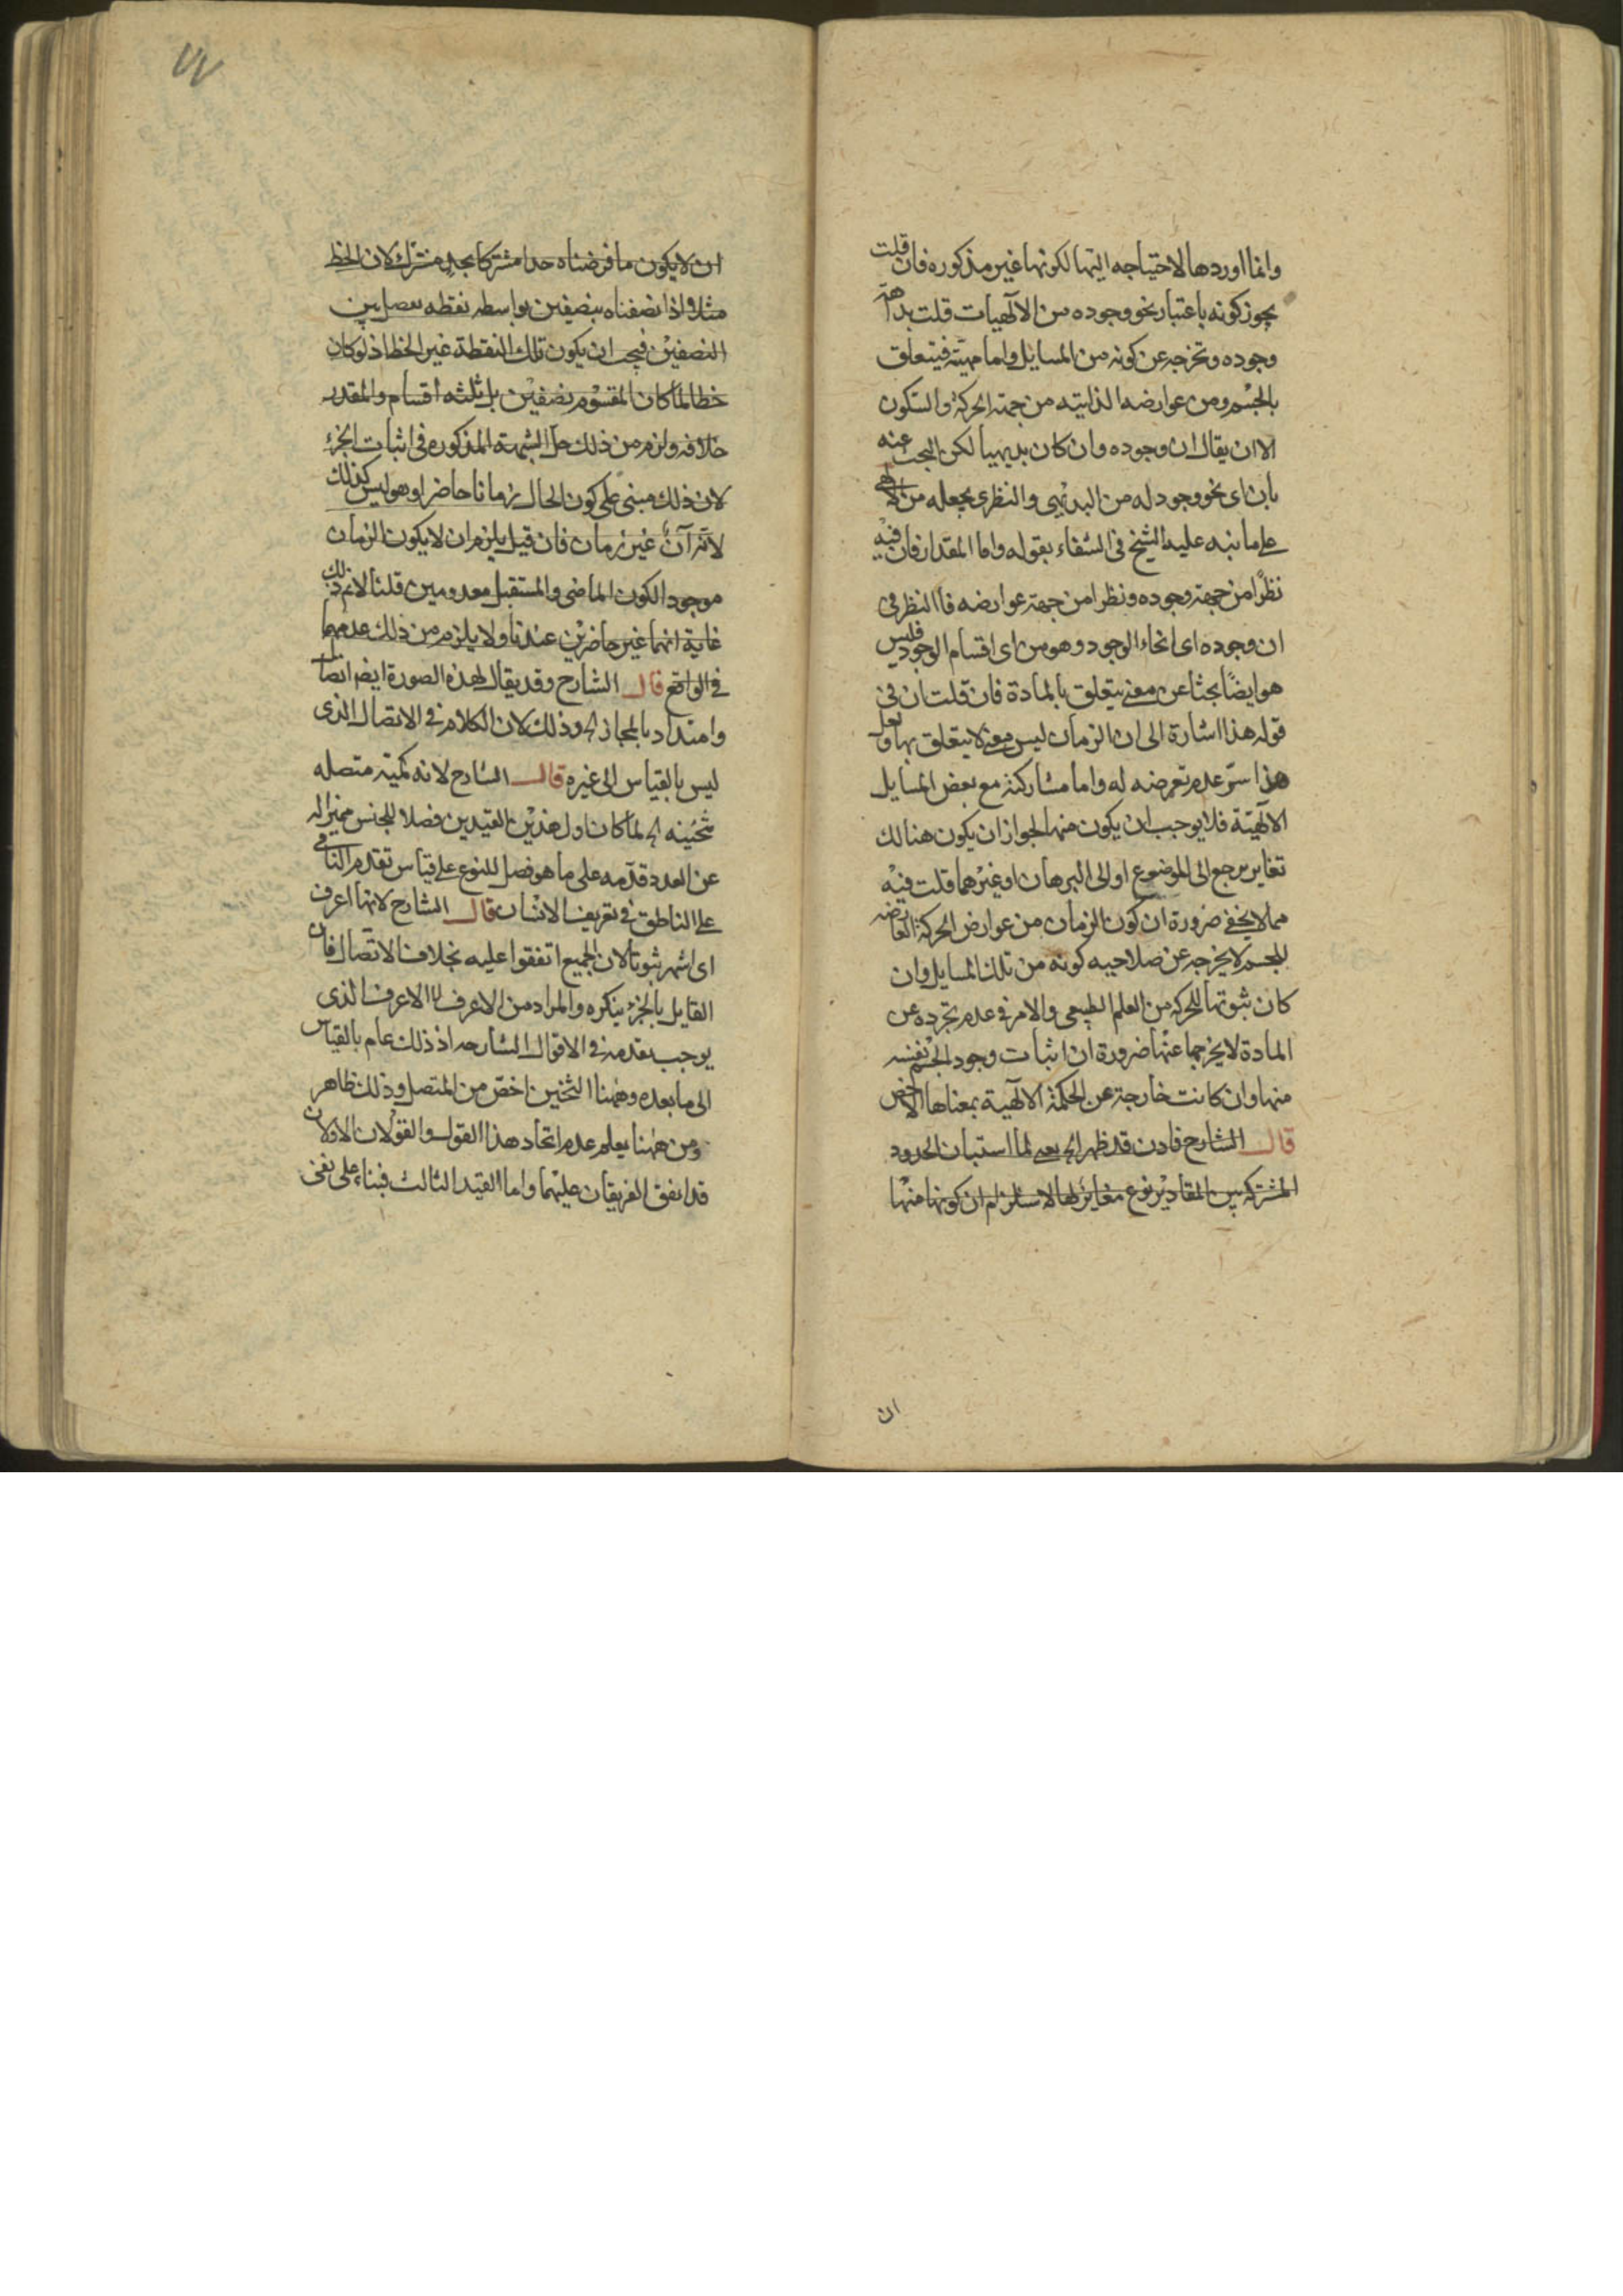 وانما اوردها لاحتياجه اليها لكونها غير مذكوره فان قلت
يجوز كونه باعتبار نحو وجوده من الالهيات قلت بداهة
وجوده وتخرجه عن كونه من المسايل واما مهيته فيتعلق
بالجسم ومن عوارضه الذاتيته من جهة الحركة والسكون
الا ان يقال ان وجوده وان كان بديهيا لكن البحث عنه
بأن اى نحو وجود له من البديهى والنظرى يجعله من الالهى
على ما نبه عليه الشيخ فى الشفاء بقوله واما المقدار فان فيه
نظرًا من جهة وجوده ونظرا من جهة عوارضه فا النظر فى
ان وجوده اى انحاء الوجود وهو من اى اقسام الوجود فليس
هو ايضًا بحثا عن معنى يتعلق بالمادة فان قلت ان فى
قوله هذا اشارة الى ان الزمان ليس معنى لا يتعلق بها ولعل
هذا سرّ عدم تعرضه له واما مشاركته مع بعض المسايل
الالهيّة فلا يوجب ان يكون منها لجواز ان يكون هنالك
تغاير يرجع الى الموضوع او الى البرهان او غيرهما قلت فيه
مما لا يخفى ضرورة ان كون الزمان من عوارض الحركة العارضه
للجسم لا يخرجه عن صلاحيه كونه من تلك المسايل وان
كان ثبوتها للحركه من العلم الطبيعى والامر فى عدم تجرده عن
المادة لا يخرجها عنها ضرورة ان اثبات وجود الجسم نفسه
منها وان كانت خارجة عن الحكمة الالهية بمعناها الاخص
قال الشارح فاذن قد ظهر الخ يعنى لما استبان الحدود
المشتركه بين المقادير نوع مغاير لها لاستلزام ان كونها منها
ان
٧٧
ان لا يكون ما فرضناه حدا مشتركا بحد مشترك لان الخط
مثلا اذا نصفناه بنصفين بواسطه نقطه تفصل بين
النصفين فيجب ان يكون تلك النقطة غير الخط اذ لو كان
خطا لما كان المقسوم نصفين بل ثلثه اقسام والمقدر
خلافه ولزم من ذلك حل الشبهة المذكوره فى اثبات الجزء
لان ذلك مبنى على كون الحال زمانا حاضرا وهو ليس كذلك
لانه آنٌ غير زمان فان قيل يلزم ان لا يكون الزمان
موجودا لكون الماضى والمستقبل معدومين قلنا لا نم ذلك
غاية انهما غير حاضرين عندنا ولا يلزم من ذلك عدمهما
فى الواقع قال الشارح وقد يقال لهذه الصورة ايضا اتصال
وامتداد بالمجاز الخ وذلك لان الكلام فى الاتصال الذى
ليس بالقياس الى غيره قال الشارح لانه كمية متصله
ثخينه الخ لما كان اول هذين القيدين فصلا للجنس مميزا له
عن العدد قدّمه على ما هو فصل للنوع على قياس تقدم النامى
على الناطق فى تعريف الانسان قال الشارح لانها اعرف
اى اشهر ثبوتا لان الجميع اتفقوا عليه بخلاف الاتصال فان
القايل بالجزء ينكره والمراد من الاعرف لا الاعرف الذى
يوجب تقدمه فى الاقوال الشارحه اذ ذلك عام بالقياس
الى ما بعده وههنا الثخين اخصّ من المتصل وذلك ظاهر
ومن ههنا يعلم عدم اتحاد هذا القول والقولان الاولان
قد اتفق الفريقان عليهما واما القيد الثالث فبناء على نفى